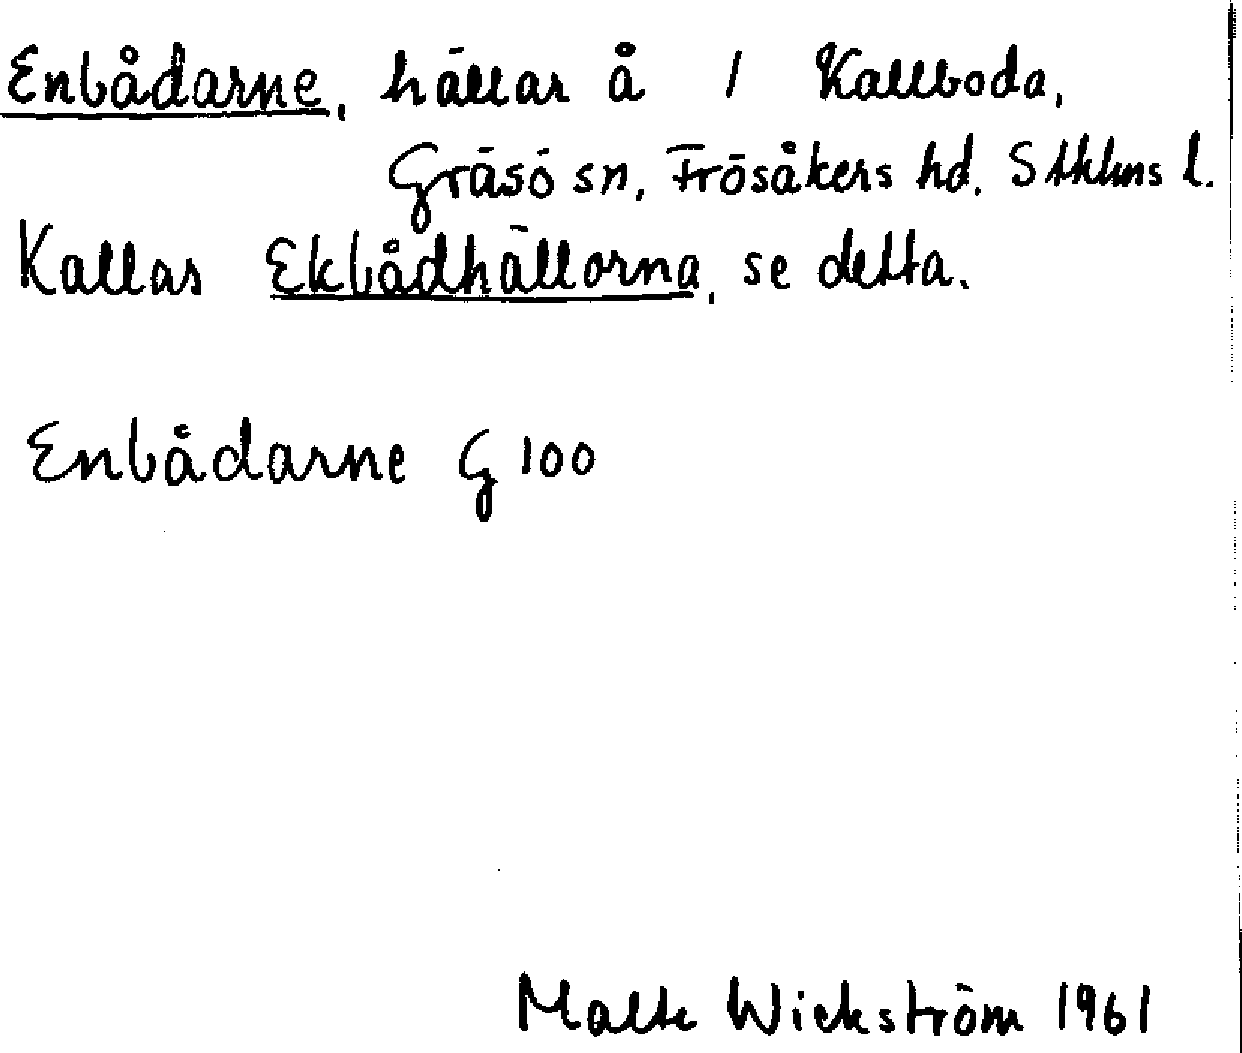 Enbådarne, hällar å 1 Kallboda,
Gräsö sn, Frösåkers hd. Sthlms l.
Kallas Ekbådhällorna, se detta.
Enbådarne G 100
Malte Wickström 1961